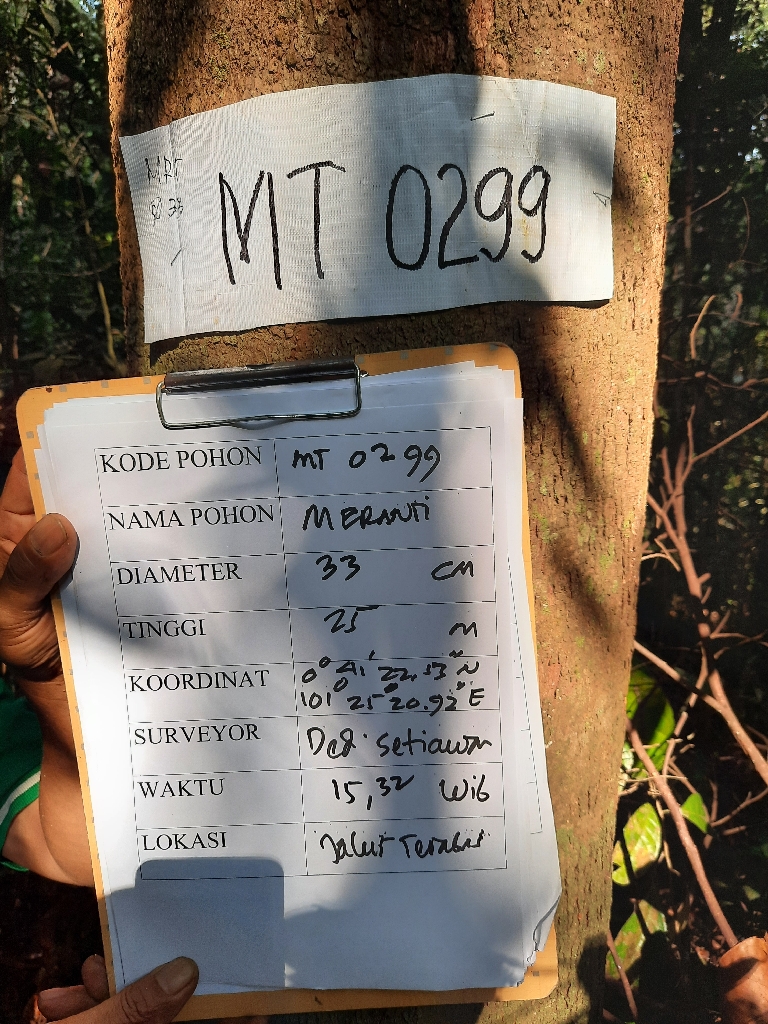 MRT
MT 0299
KODE POHON MT 0299
NAMA POHON MERANTI
DIAMETER 33 CM
TINGGI 25 M
KOORDINAT 0° 41' 22.53" N
101° 25' 20.92" E
SURVEYOR Ded. setiawan
WAKTU 15,32 Wib
LOKASI Jalur Terabas